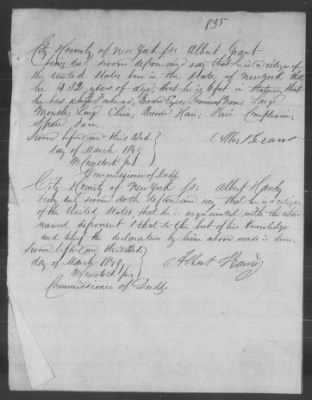 835
City & County of New York ss. Albert Grant
being duly sworn deposes and say that he is a citizen of
the United States born in the State of New York that
he is 32 years of age; that he is feet in stature, that
he has a high Forehead, Brown Eyes, Prominent Nose Large
Mouth, Long Chin, Brown Hair, Fair Complexion,
Spare Face.
Sworn before me this 22d
day of March 1849
Albert Grant
Commissioner of Deeds
City & County of New York ss. Albert Handy
being duly sworn doth depose and say that he is a citizen
of the United States, that he is acquainted with the above
named deponent & that to the best of his knowledge
and belief the declaration by him above made is true.
Sworn before me this 22d
day of March 1849
Albert Handy
Commissioner of Deeds